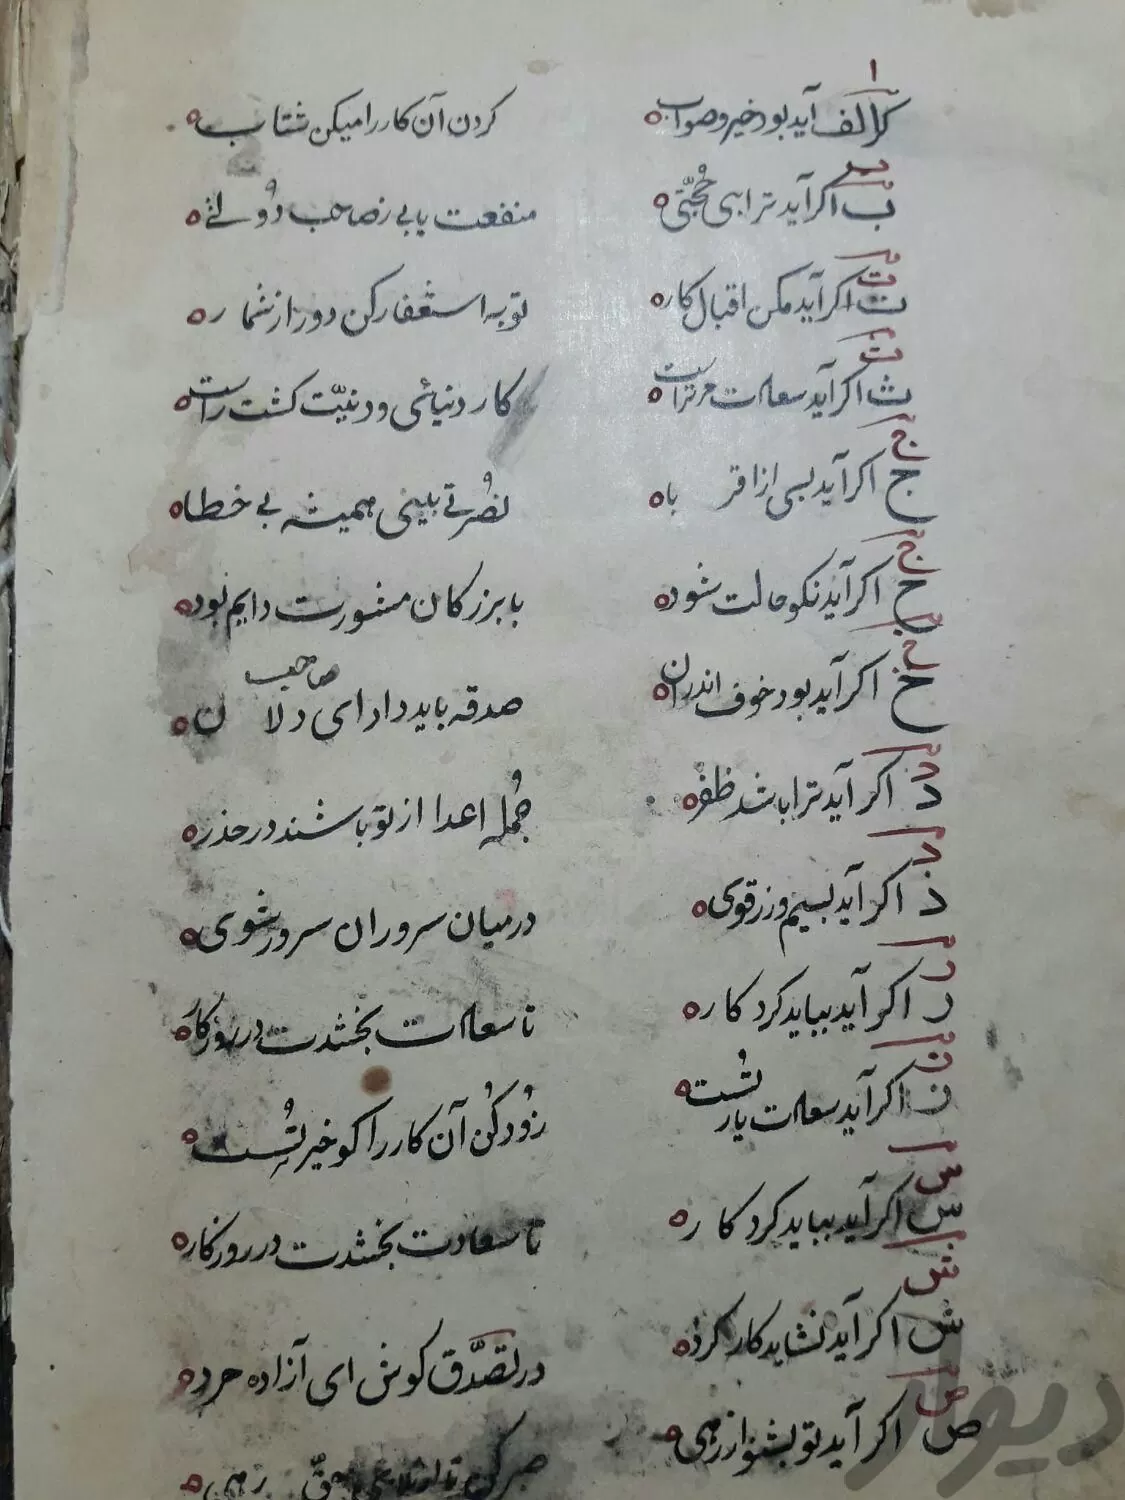 ا
گر الف آید بود خیر و صواب
کردن آن کار را میکن شتاب
ب
ب اکر آید ترا بی حُجّتی
منفعت یابی ز صاحب دُولتی
ت
ت اکر آید مکن اقبال کار
توبه استغفار کن دور از شمار
ث
ث اکر آید سعادت مر تراست
کار دنیائی و دنییّت کشت راست
ج
ج اکر آید بسی از اقربا
نصُرتی بینی همیشه بی خطا
ح
ح اکر آید نکو حالت شود
با بزرکان مشورت دایم بود
خ
خ اکر آید بود خوف اندران
صدقه باید داد ای صاحب دلان
د
د اکر آید ترا باشد ظفر
جُمله اعدا از تو باشند در حذر
ذ
ذ اکر آید بسیم و زر قوی
در میان سروران سرور شوی
ر
ر اکر آید بباید کرد کار
تا سعادت بخشدت در روزکار
ز
ز اکر آید سعادت یار تُست
زُود کُن آن کار را کو خیر تُست
س
س اکر آید بباید کرد کار
تا سعادت بخشدت در روزکار
ش
ش اکر آید نشاید کار کرد
در تصدّق کوش ای آزاده مرد
ص
ص اکر آید تو بشنو از رهی
صبر کن تا رهی
دیوار